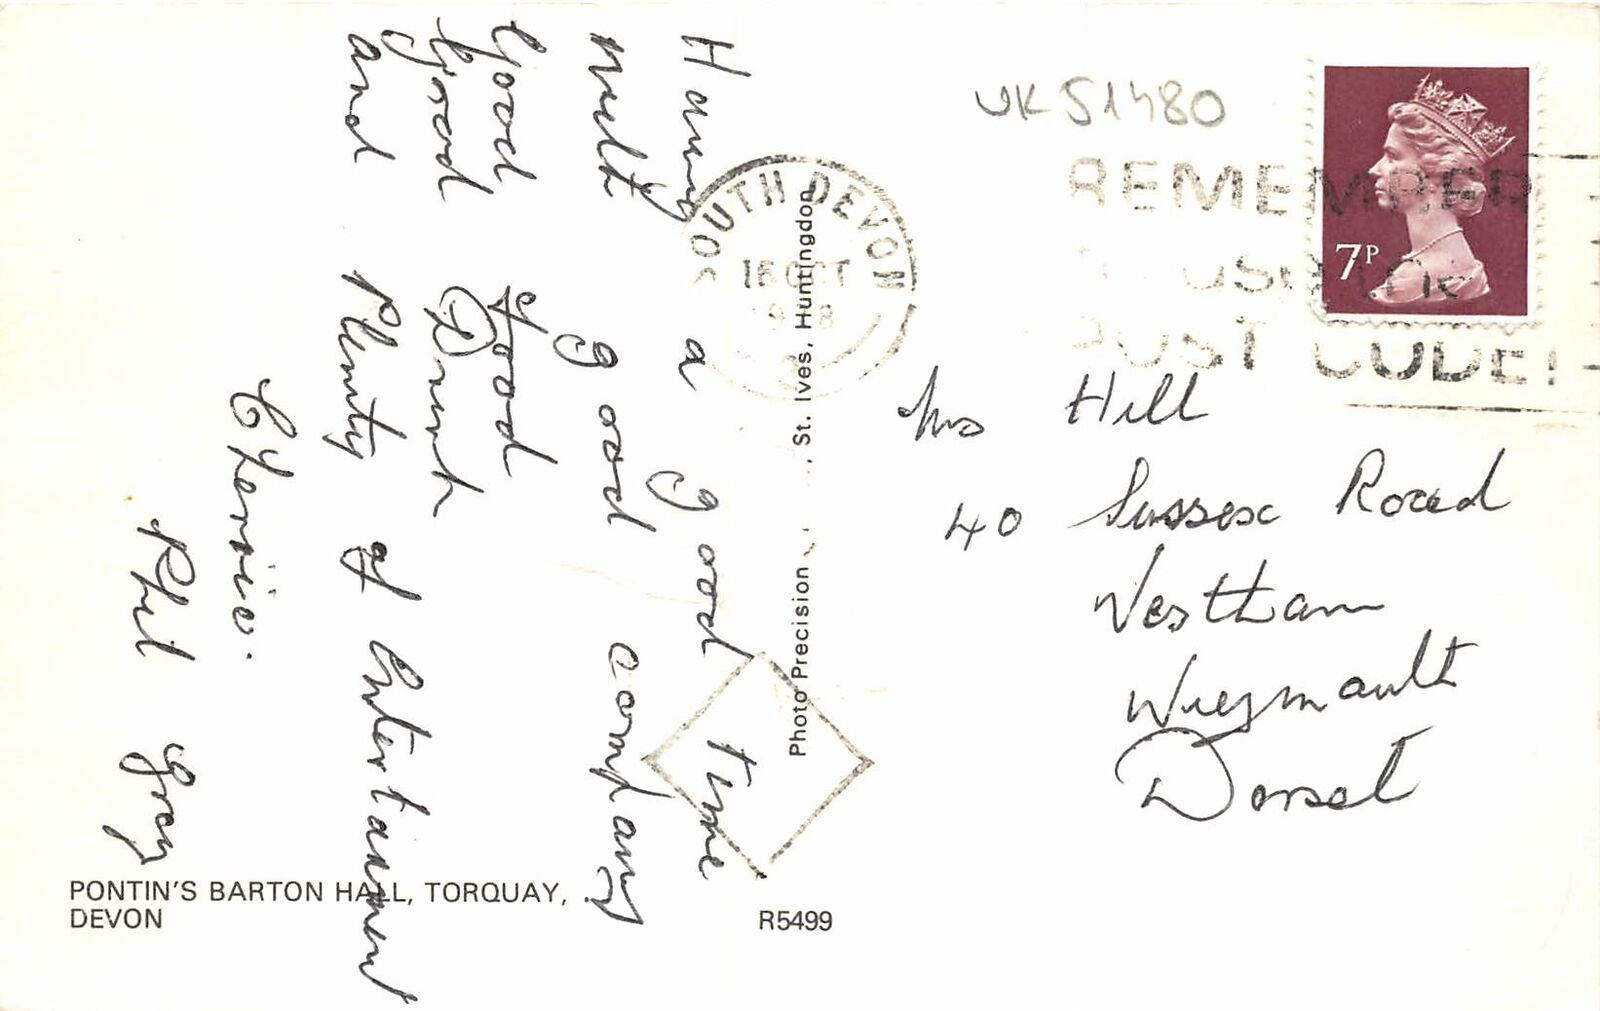 Having a good time
with good company
Good food
Good Drink
and Plenty of Entertainment
Phil Gray
UK51480
SOUTH DEVON
16 OCT
REMEMBER
TO USE THE
POST CODE!
7P
Mrs Hill
40 Sussex Road
Westham
Weymouth
Dorset
Photo Precision St. Ives, Huntingdon
PONTIN'S BARTON HALL, TORQUAY,
DEVON
R5499